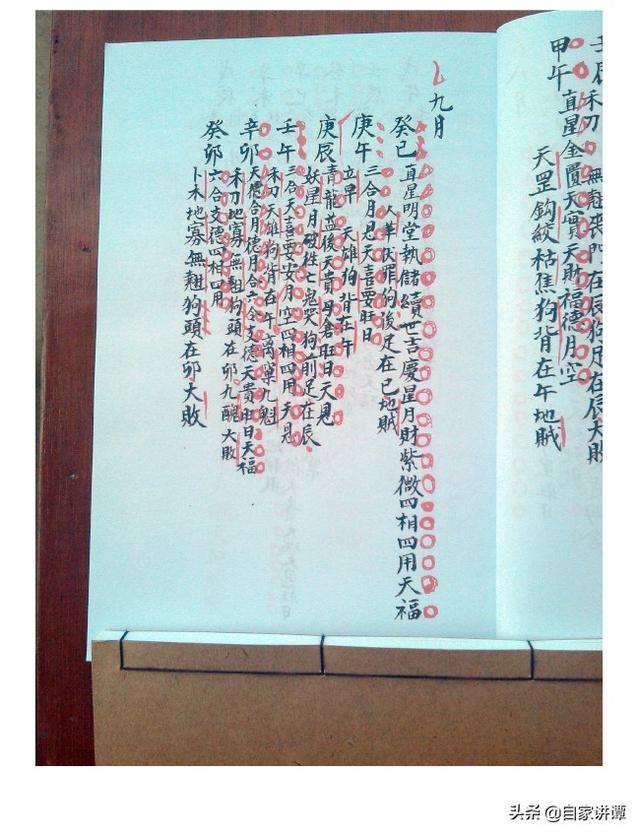 壬辰 禾刀 無翹 喪門在辰 狗足在辰 大敗
甲午 直星 金匱 天寳 天財 福德 月空
天罡 鈎絞 枯焦 狗背在午 地賊
九月
癸巳 直星 明堂 執儲 續世 吉慶星 月財 紫微 四相 四用 天福
人華 伏罪 狗後足在巳 地賊
庚午 三合 月恩 天喜 要 旺日
立早 天雄 狗背在午
庚辰 青龍 益後 天貴 母倉 旺日 天恩
妖星 月破 牲亡 鬼哭 狗前足在辰
壬午 三合 天喜 要安 月空 四相 四用 天恩
禾刀 天雄 狗背在午 離巢 九魁
辛卯 天德合 月德合 六合 文德 天貴 旺日 天福
禾刀 地寡 無翹 狗頭在卯 九醜 大敗
癸卯 六合 文德 四相 四用
卜木 地寡 無翹 狗頭在卯 大敗
头条 @自家讲谭